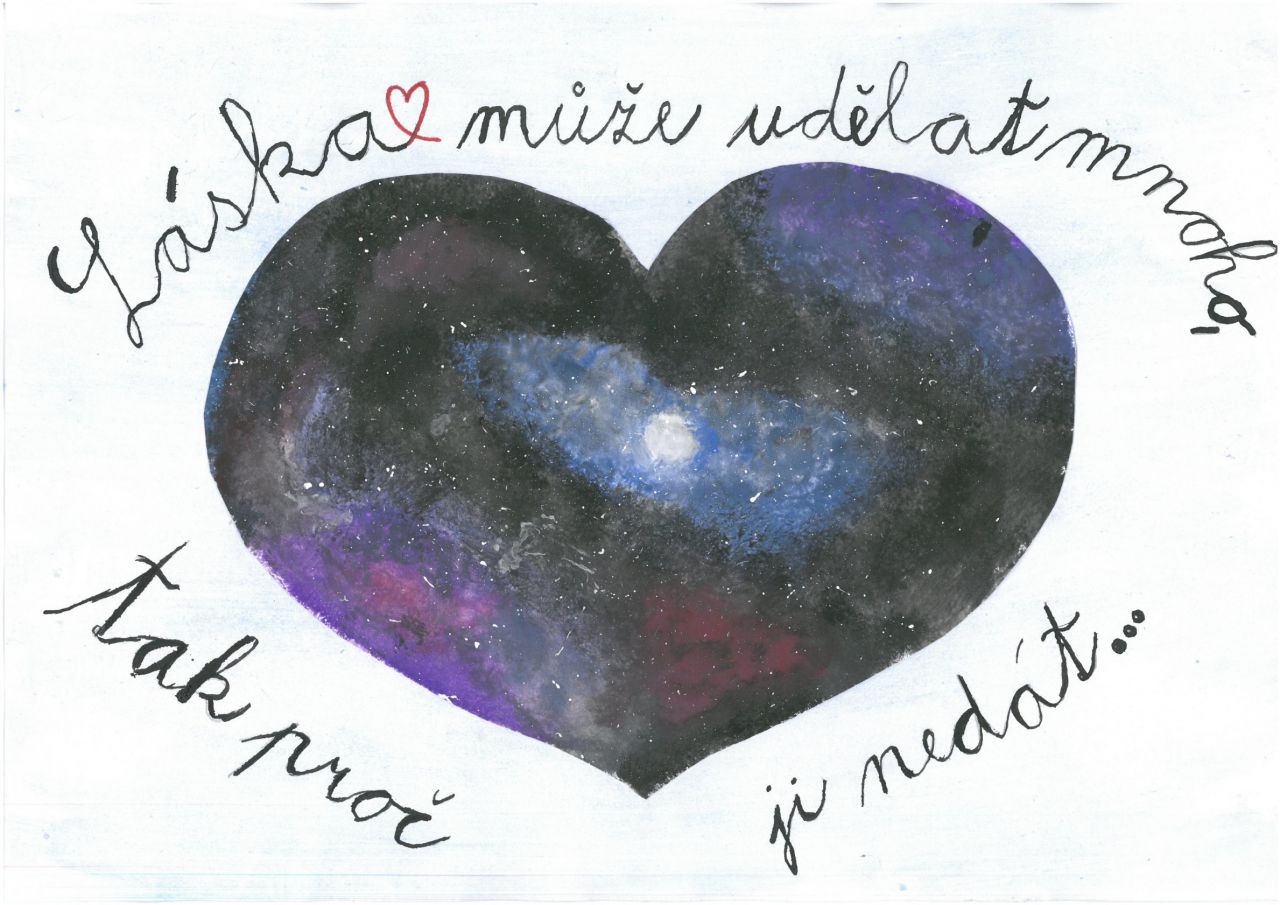 Láska může udělat mnoho,
tak proč
ji nedát...